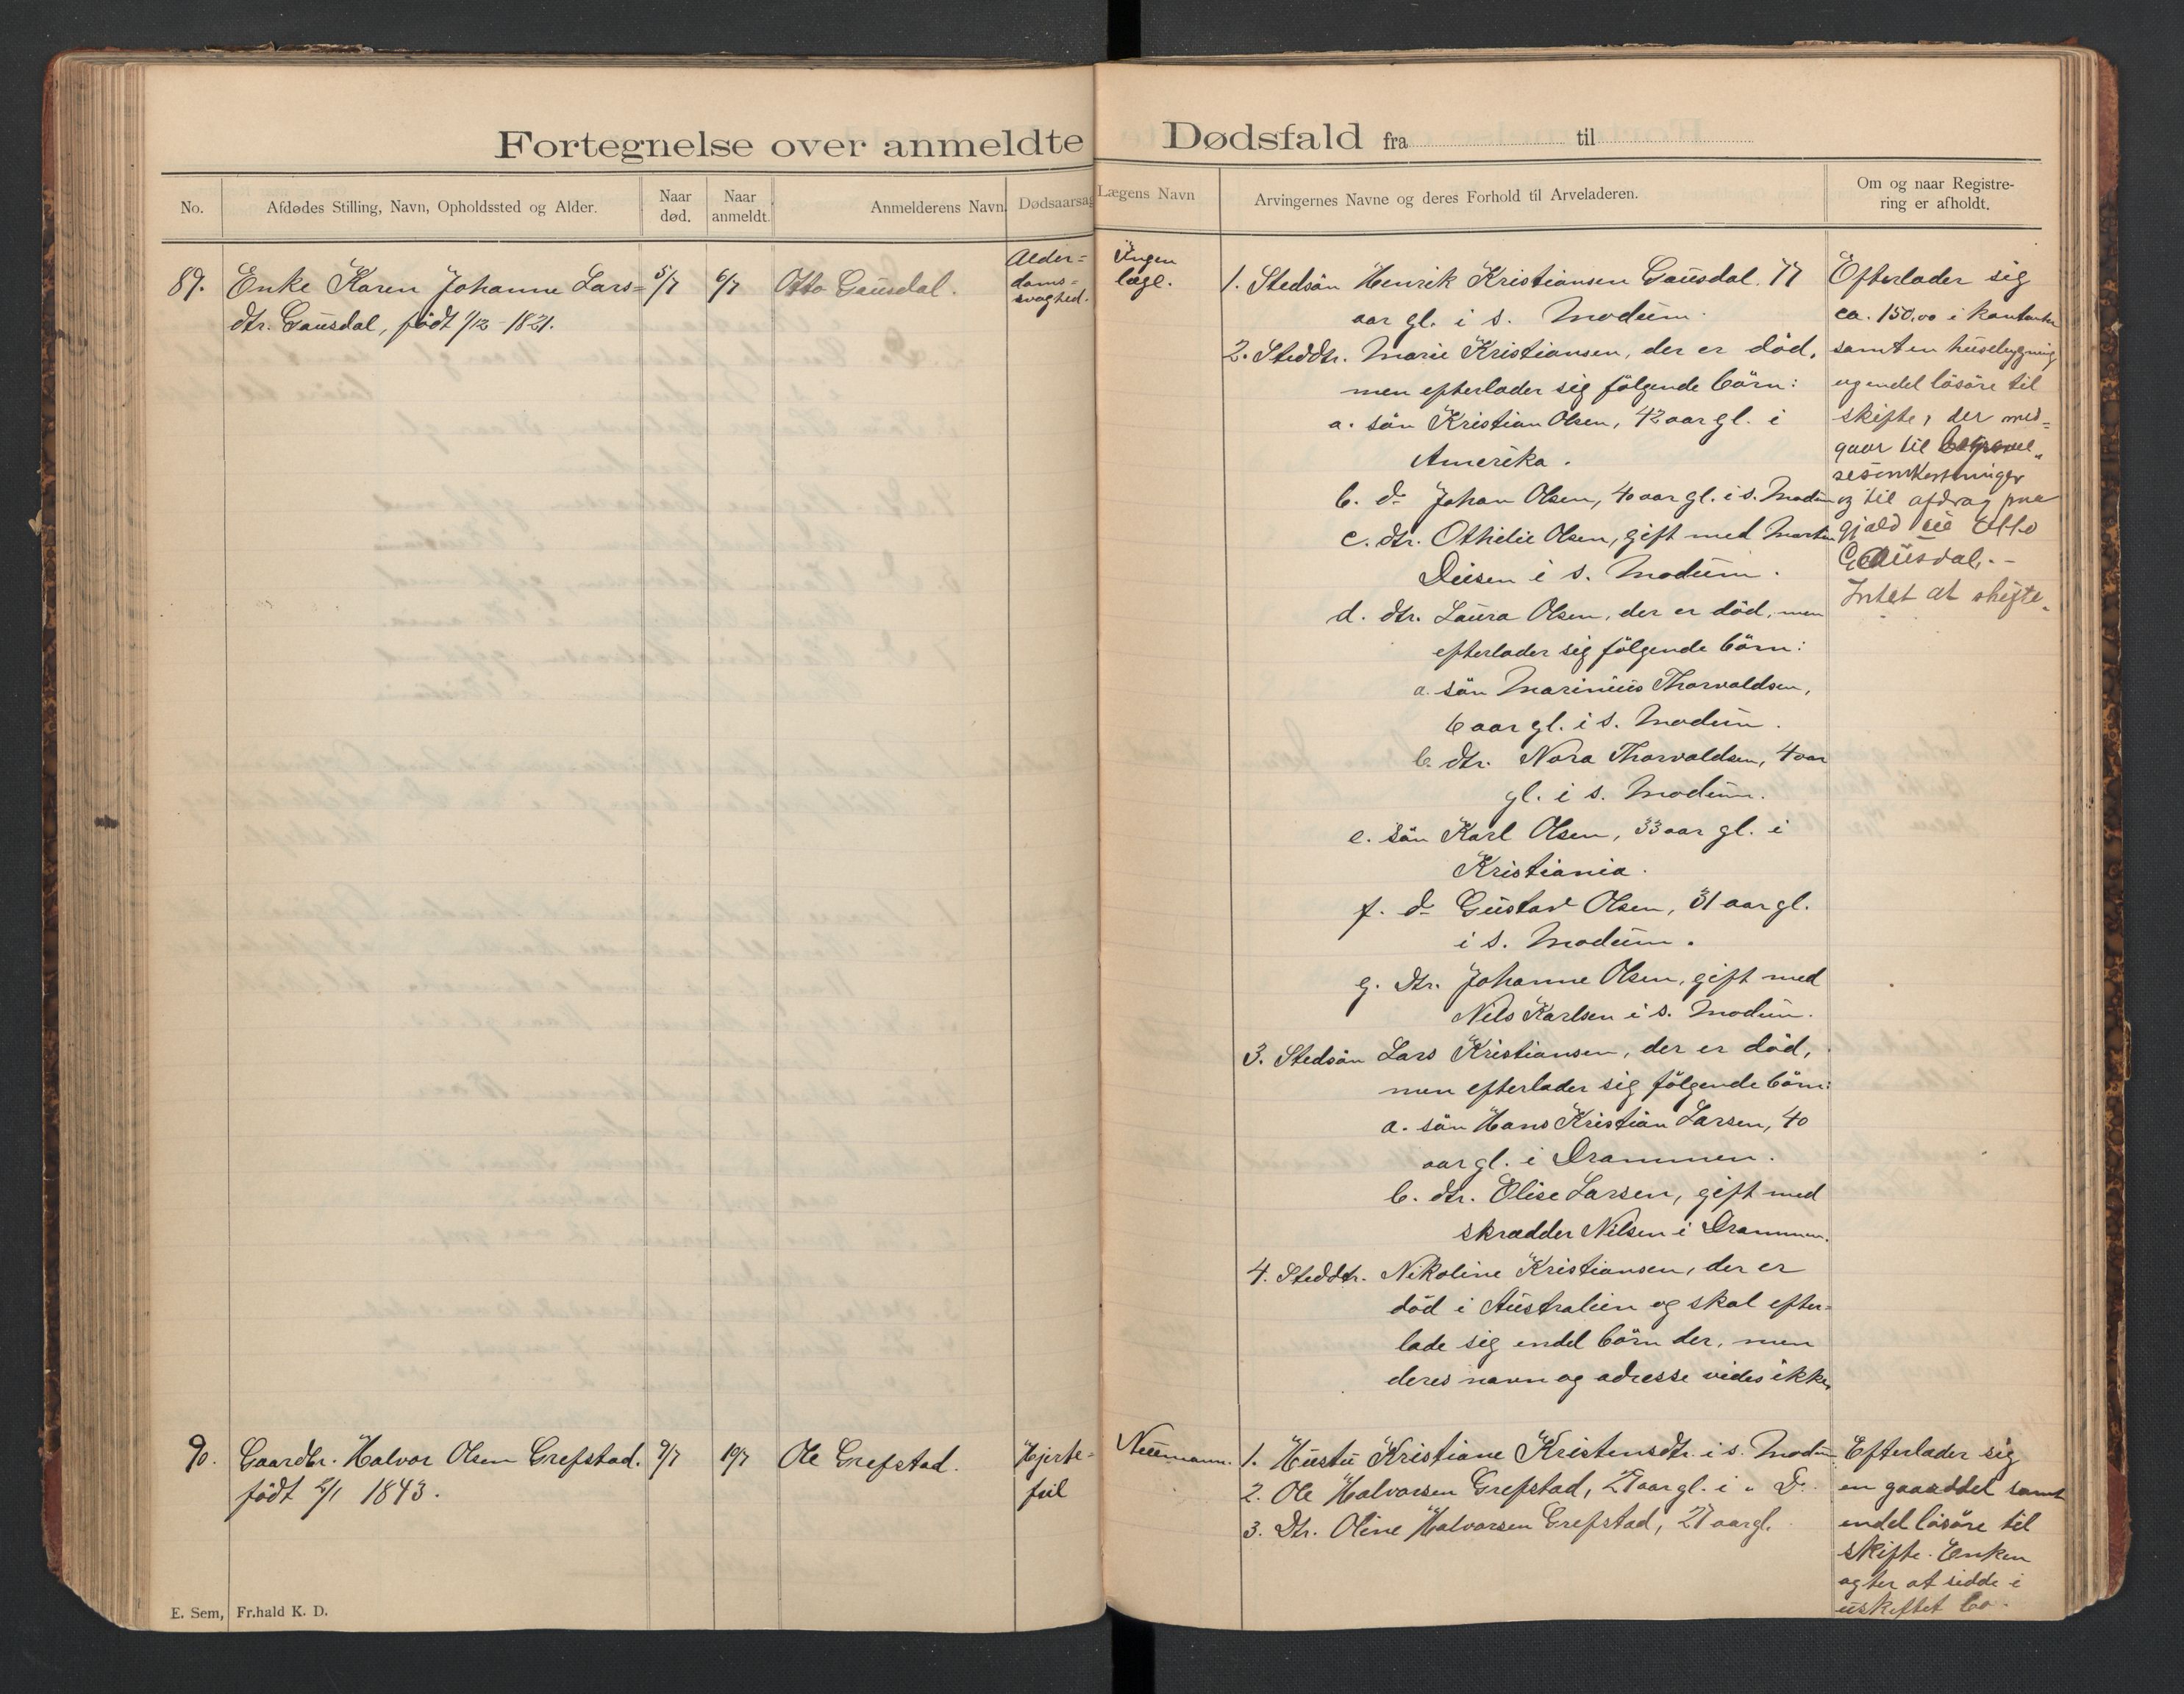 Fortegnelse over anmeldte Dødsfald fra til
No.
Afdødes Stilling, Navn, Opholdssted og Alder.
Naar død.
Naar anmeldt.
Anmelderens Navn
Dødsaarsag
Lægens Navn
Arvingernes Navne og deres Forhold til Arveladeren.
Om og naar Registre-
ring er afholdt.
89.
Enke Karen Johanne Lars=
dtr. Gausdal, født 1/12 - 1821.
5/7
6/7
Otto Gausdal.
Alder=
doms=
svaghed.
Ingen
læge.
1. Stedsön Henrik Kristiansen Gausdal. 77
aar gl. i s. Modum.
2. Steddtr. Marie Kristiansen, der er död,
men efterlader sig fölgende börn:
a. sön Kristian Olsen, 42 aar gl. i
Amerika.
b. do Johan Olsen, 40 aar gl. i s. Modum
c. dtr. Othilie Olsen, gift med Martin
Diesen i s. Modum.
d. dtr. Laura Olsen, der er död, men
efterlader sig fölgende börn:
a. sön Marinius Thorvaldsen,
6 aar gl. i s. Modum.
b. dtr. Nora Thorvaldsen, 4 aar
gl. i s. Modum.
e. sön Karl Olsen, 33 aar gl. i
Kristiania.
f. do Gustav Olsen, 31 aar gl.
i s. Modum.
g. dtr. Johanne Olsen, gift med
Nils Karlsen i s. Modum.
3. Stedsön Lars Kristiansen, der er död,
men efterlader sig fölgende börn:
a. sön Hans Kristian Larsen, 40
aar gl. i Drammen.
b. dtr. Elise Larsen, gift med
skrædder Nilsen i Drammen.
4. Steddtr. Nikoline Kristiansen, der er
död i Australien og skal efter=
lade sig endel börn der, men
deres navn og adresse vides ikke.
Efterlader sig
ca. 150.00 i kontanter
samt en husbygning
og endel lösöre til
skifte, der med=
gaar til begravel=
sesomkostninger
og til afdrag paa
gjæld til Otto
Gausdal. -
Intet at skifte.
90.
Gaardbr. Halvor Olsen Grefstad.
födt 5/1 1843.
9/7
19/7
Ole Grefstad.
Hjerte=
feil
Neumann.
1. Hustru Kristiane Kristensdtr. i s. Modum
2. Ole Halvorsen Grefstad, 29 aar gl. i " Do
3. Dtr. Oline Halvorsen Grefstad, 27 aar gl.
Efterlader sig
en gaarddel samt
endel lösöre til
skifte. Enken
agter at sidde i
uskiftet bo.
E. Sem, Fr.hald K. D.